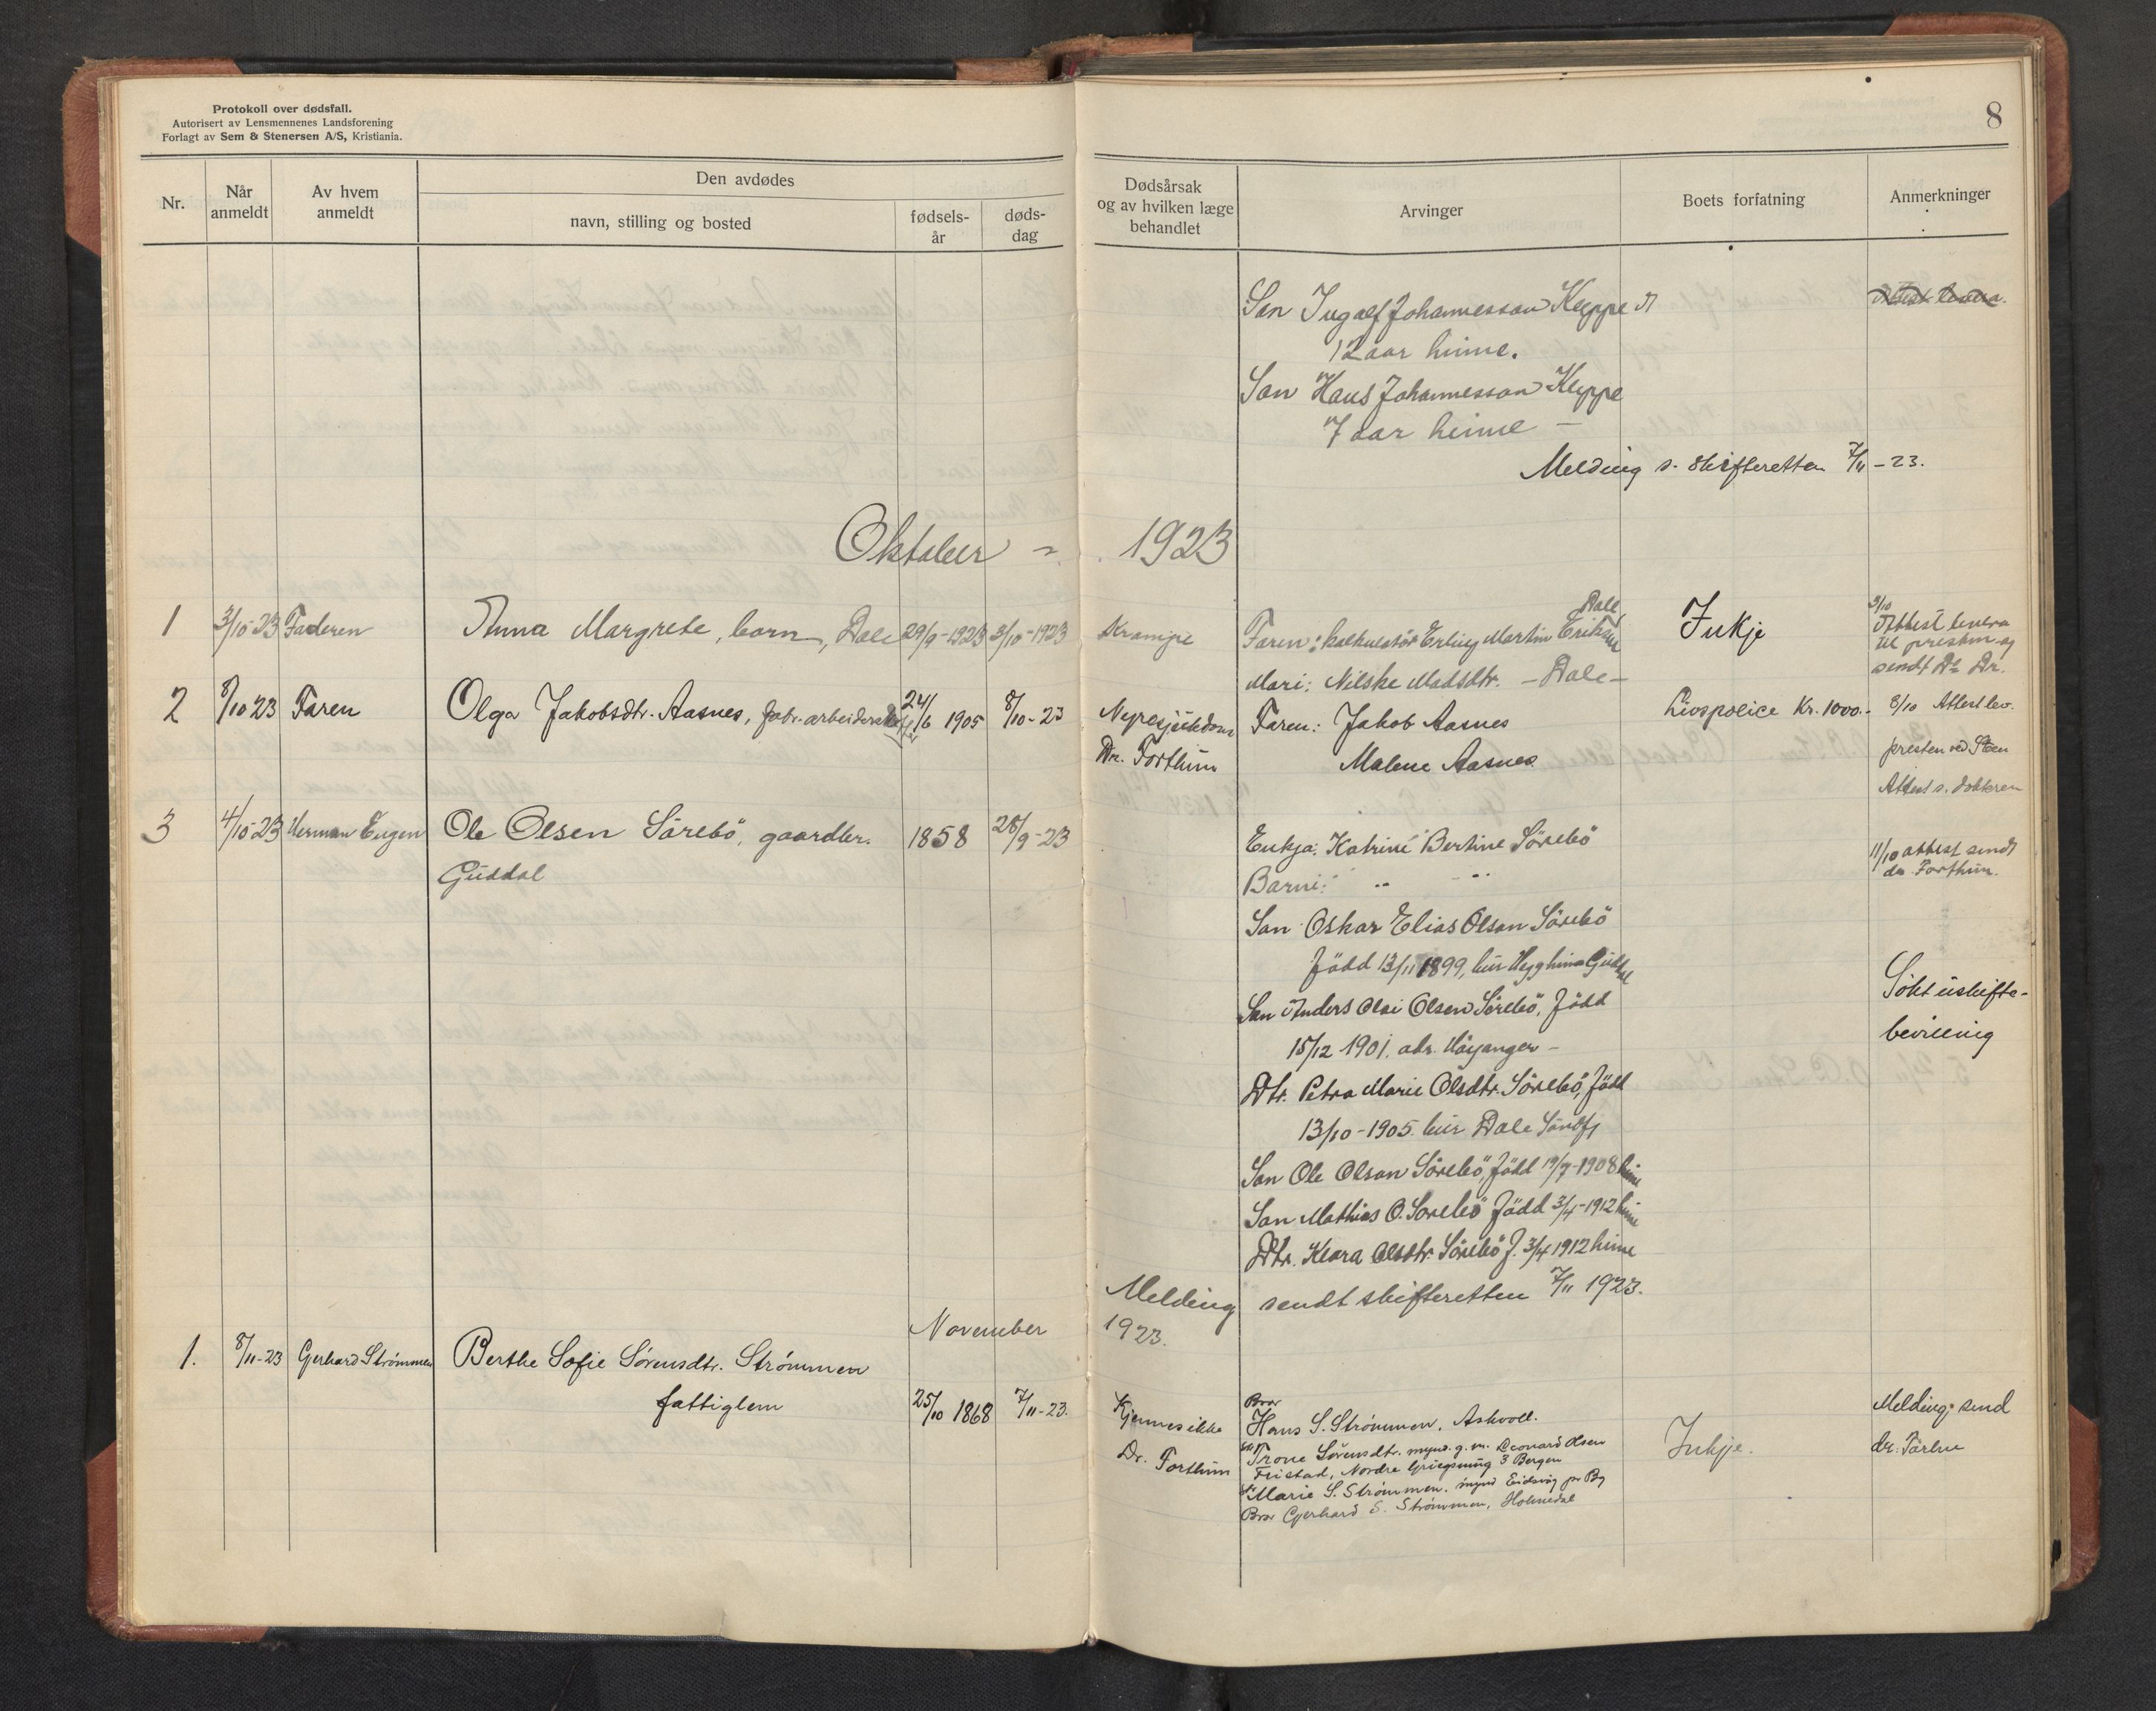 Protokoll over dødsfall.
Autorisert av Lensmennenes Landsforening
Forlagt av Sem & Stenersen A/S, Kristiania.
8
Nr.
Når anmeldt
Av hvem anmeldt
Den avdødes
navn, stilling og bosted
fødsels-år
døds-dag
Dødsårsak og av hvilken læge behandlet
Arvinger
Boets forfatning
Anmerkninger
Son Ingolf Johannesson Kleppe
12 aar heime.
Son Hans Johannesson Kleppe
7 aar heime —
Melding s. skifteretten 7/11-23.
Oktober - 1923
1 3/10-23 Faderen Anna Margrete, born, Dale 29/9-1923 3/10-1923 Krampe
Faren: kalkulatör Erling Martin Eriksen Dale
Mori: Nilske Madsdtr. - Dale -
Inkje
3/10 Attest levera
til presten og
sendt Dr.
2 8/10 23 Faren Olga Jakobsdtr. Aasnes, fabr. arbeiderske 24/6 1905 8/10-23
Nyresjukdom
Dr. Forthun
Faren: Jakob Aasnes
Malene Aasnes
Livspolice Kr. 1000.-
8/10 Attest lev.
presten ved Steen
Attest s. doktoren
3 4/10-23 Herman Eugen Ole Olsen Sörebö, gaardbr. 1858 28/9-23
Guddal
Enkja: Katrine Bertine Sörebö
Barni: " "
Son Oskar Elias Olson Sörebö
född 13/11 1899, bur Hegheim Guddal
Son Anders Olai Olsen Sörebö, född
15/12 1901. adr. Höyanger -
Dtr. Petra Marie Olsdtr. Sörebö, född
13/10-1905. bur Dale Sundfj
Son Ole Olson Sörebö, född 19/7-1908 heime
Son Mathias O. Sörebö född 3/4-1912 heime
Dtr. Klara Olsdtr. Sörebö f. 3/4 1912 heime
11/10 attest sendt
dr. Forthun.
Sökt uskifte-
bevilling
Melding sendt skifteretten 7/11 1923.
November 1923.
1. 8/11-23 Gerhard Strømmen Berthe Sofie Sørensdtr. Strømmen
fattiglem 25/10 1868 7/11-23.
Kjennes ikke
Dr. Forthun
Bror
Hans S. Strømmen, Askvoll.
Trone Sørensdtr. mynd. g. m. Leonard Olsen
Fristad, Nordre 3 Bergen
Marie S. Strømmen, mynd Eidsvåg pr Bg
Bror Gerhard S. Strømmen, Holmedal
Inkje.
Melding send
dr.